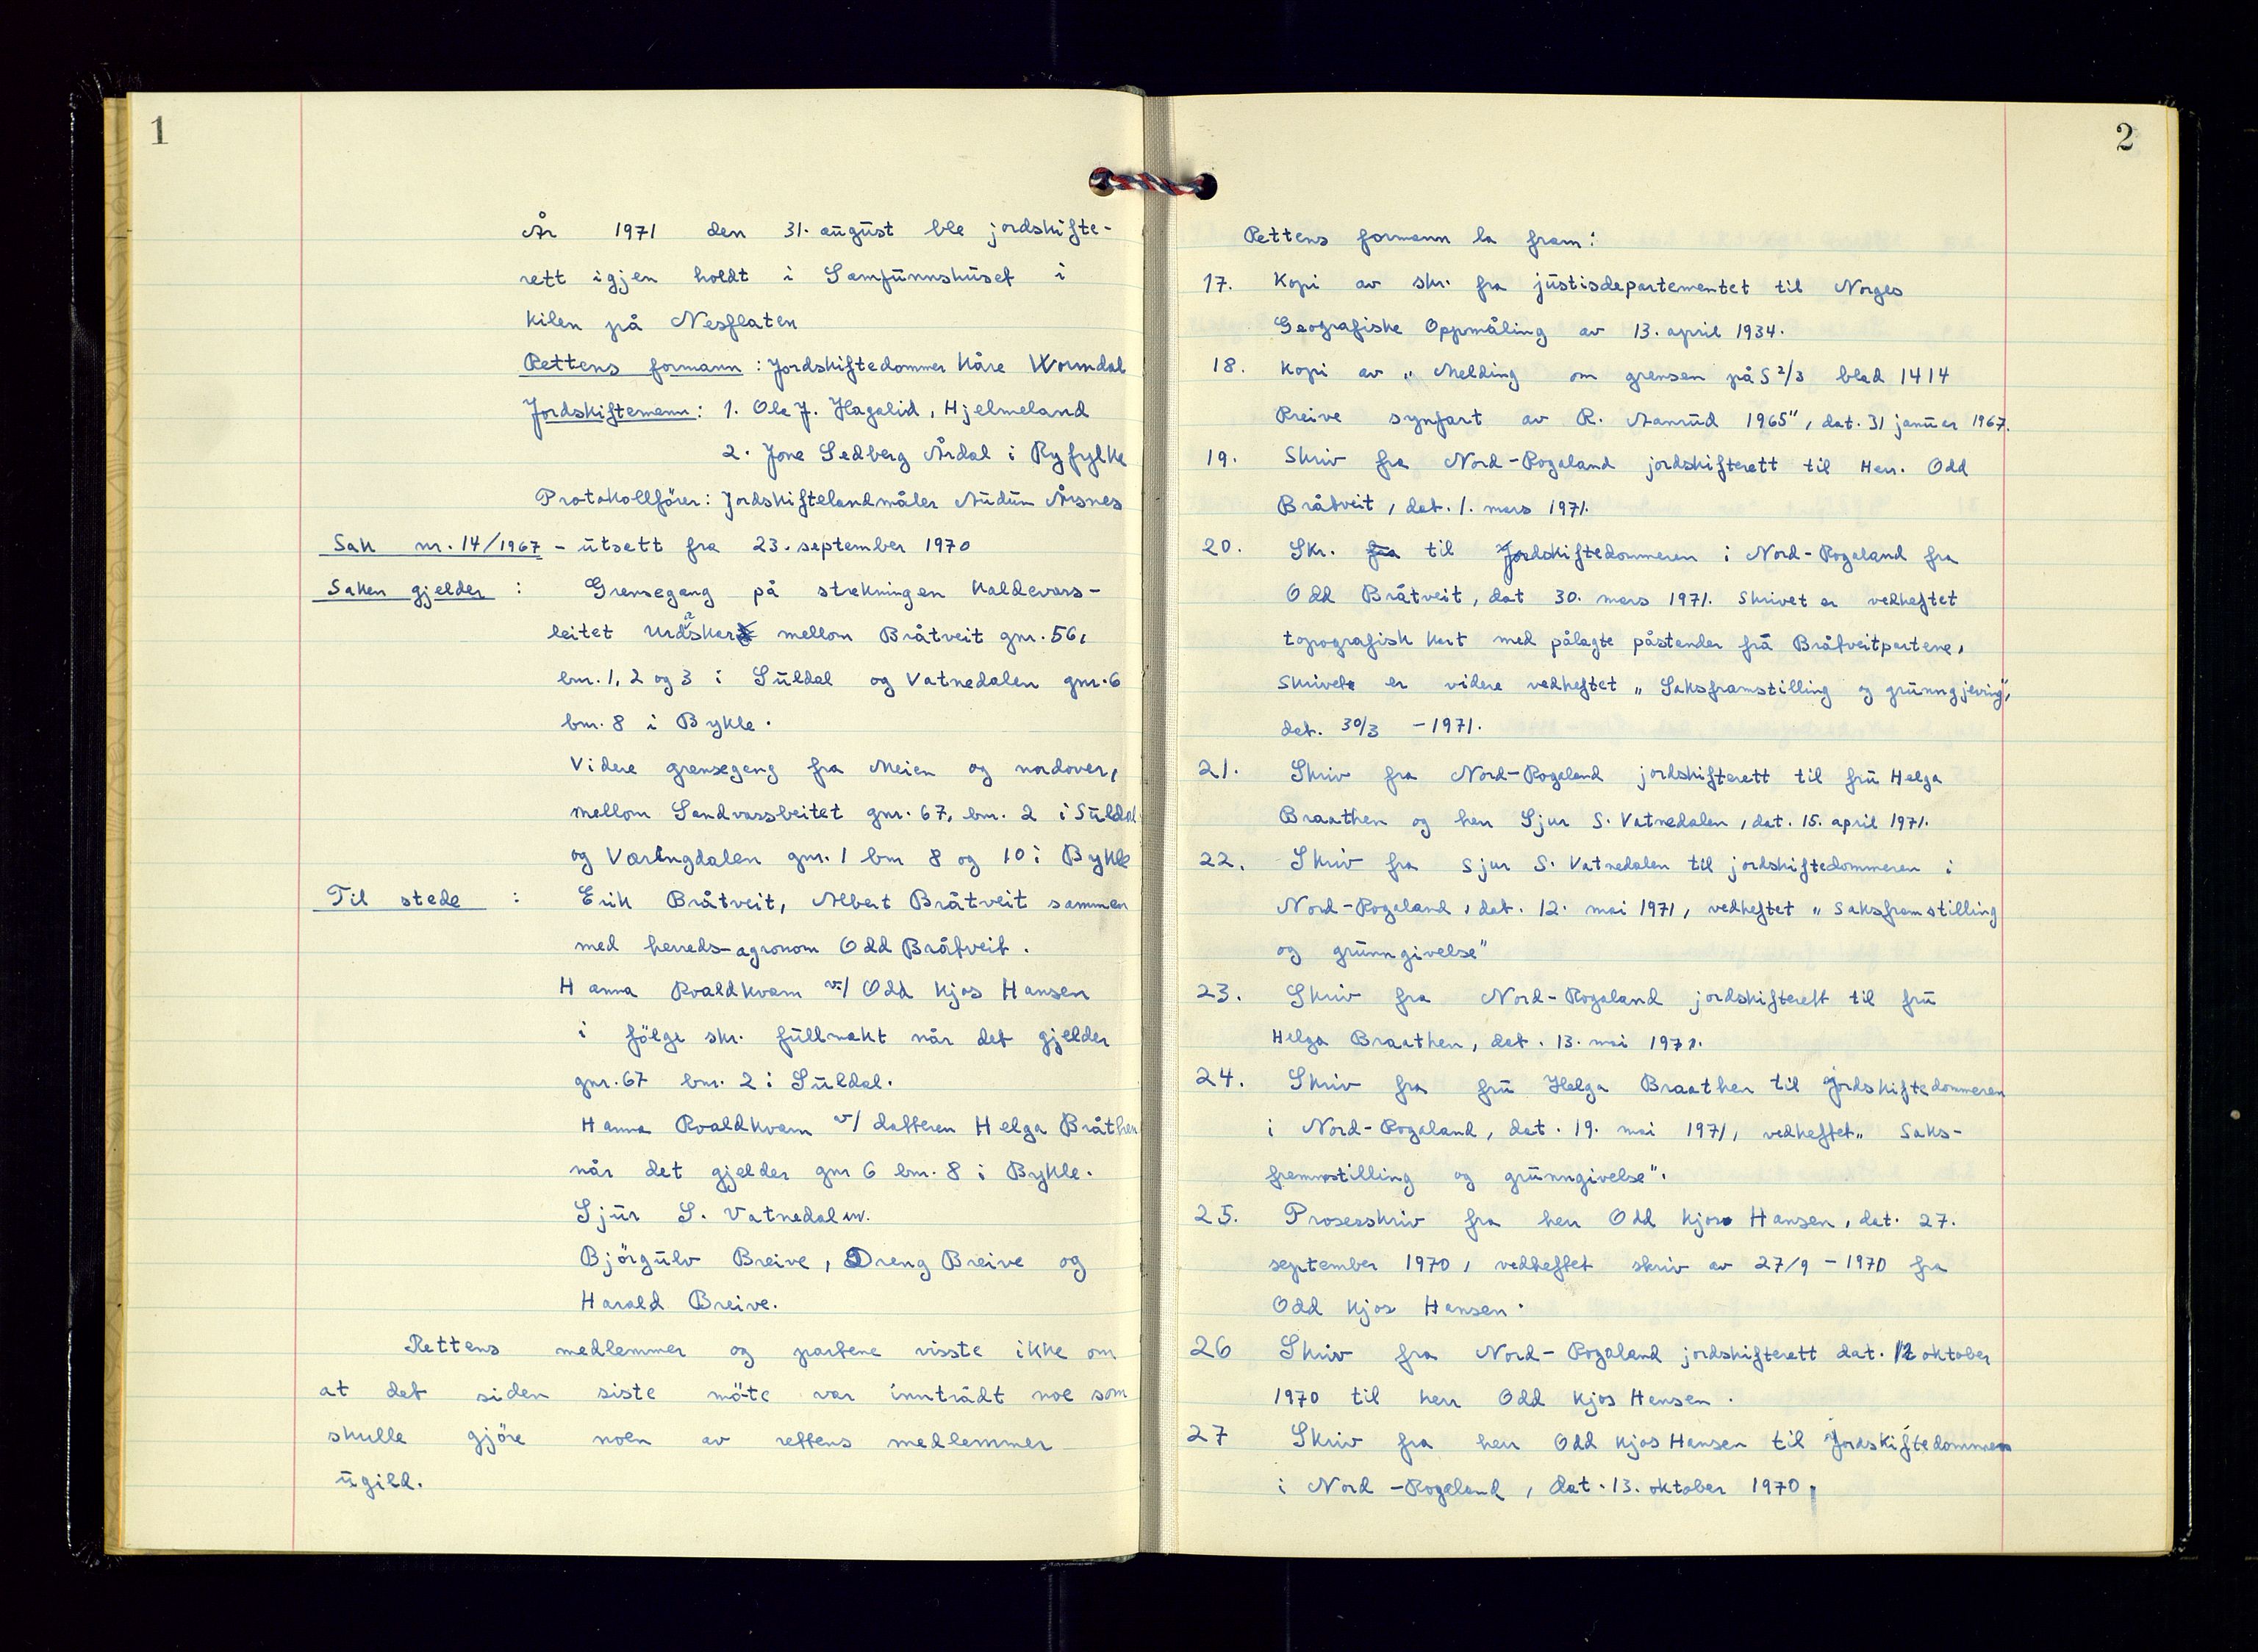 1
År 1971 den 31. august ble jordskifte-
rett igjen holdt i Samfunnshuset i
Kilen på Nesflaten
Rettens formann : Jordskiftedommer Kåre Wormdal
Jordskiftemenn: 1. Ola J. Hagalid, Hjelmeland
2. Jone Sedberg Årdal i Ryfylke
Protokollfører: Jordskiftelandmåler Audun Årsnes
Sak nr. 14/1967 - utsett fra 23. september 1970
Saken gjelder : Grensegang på strekningen Kaldevass-
leitet Urdåskar mellom Bråtveit gnr. 56,
bnr. 1, 2 og 3 i Suldal og Vatnedalen gnr. 6
bnr. 8 i Bykle.
Videre grensegang fra Meien og nordover,
mellom Sandvassbeitet gnr. 67, bnr. 2 i Suldal
og Væringdalen gnr. 1 bnr 8 og 10 i Bykle
Til stede : Erik Bråtveit, Albert Bråtveit sammen
med herreds-agronom Odd Bråtveit.
Hanna Roaldkvam v/ Odd Kjos Hansen
i følge skr. fullmakt når det gjelder
gnr. 67 bnr. 2 i Suldal.
Hanna Roaldkvam v/ datteren Helga Bråthen
når det gjelder gnr 6 bnr. 8 i Bykle.
Sjur S. Vatnedalen.
Bjørgulv Breive, Dreng Breive og
Harald Breive.
Rettens medlemmer og partene visste ikke om
at det siden siste møte var inntrådt noe som
skulle gjøre noen av rettens medlemmer
ugild.
2
Rettens formann la fram:
17. Kopi av skr. fra justisdepartementet til Norges
Geografiske Oppmåling av 13. april 1934.
18. Kopi av „Melding om grensen på S 2/3 blad 1414
Breive synfart av R. Aanrud 1965", dat. 31 januar 1967.
19. Skriv fra Nord-Rogaland jordskifterett til Herr. Odd
Bråtveit, dat. 1. mars 1971.
20. Skr. fra til Jordskiftedommeren i Nord-Rogaland fra
Odd Bråtveit, dat 30. mars 1971. Skrivet er vedheftet
topografisk kart med pålagte påstander frå Bråtveitpartene,
Skrivet er videre vedheftet „Saksframstilling og grunngjeving",
dat. 30/3 - 1971.
21. Skriv fra Nord-Rogaland jordskifterett til fru Helga
Braathen og herr Sjur S. Vatnedalen, dat. 15. april 1971.
22. Skriv fra Sjur S. Vatnedalen til jordskiftedommeren i
Nord-Rogaland, dat. 12. mai 1971, vedheftet „Saksframstilling
og grunngivelse"
23. Skriv fra Nord-Rogaland jordskifterett til fru
Helga Braathen, dat. 13. mai 1971.
24. Skriv fra fru Helga Braathen til jordskiftedommeren
i Nord-Rogaland, dat. 19. mai 1971, vedheftet „Saks-
fremstilling og grunngivelse".
25. Prosesskriv fra herr Odd Kjos Hansen, dat. 27.
september 1970, vedheftet skriv av 27/9 - 1970 fra
Odd Kjos Hansen.
26 Skriv fra Nord-Rogaland jordskifterett dat. 12 oktober
1970 til herr Odd Kjos Hansen.
27 Skriv fra herr Odd Kjos Hansen til Jordskiftedommeren
i Nord-Rogaland, dat. 13. oktober 1970,